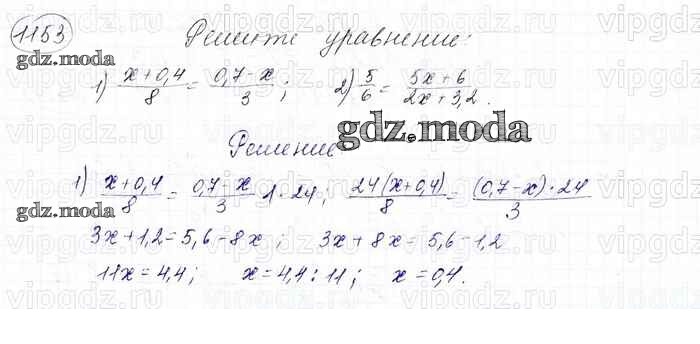 1153
Решите уравнение:
gdz.moda
1) (x+0,4)/8 = (0,7-x)/3 ; 2) 5/6 = (5x+6)/(2x+3,2).
gdz.moda
Решение
1) (x+0,4)/8 = (0,7-x)/3 |·24; (24(x+0,4))/8 = ((0,7-x)·24)/3
gdz.moda
3x+1,2=5,6-8x ; 3x+8x=5,6-1,2
11x=4,4; x=4,4:11; x=0,4.
vipgdz vipgdz vipgdz vipgdz